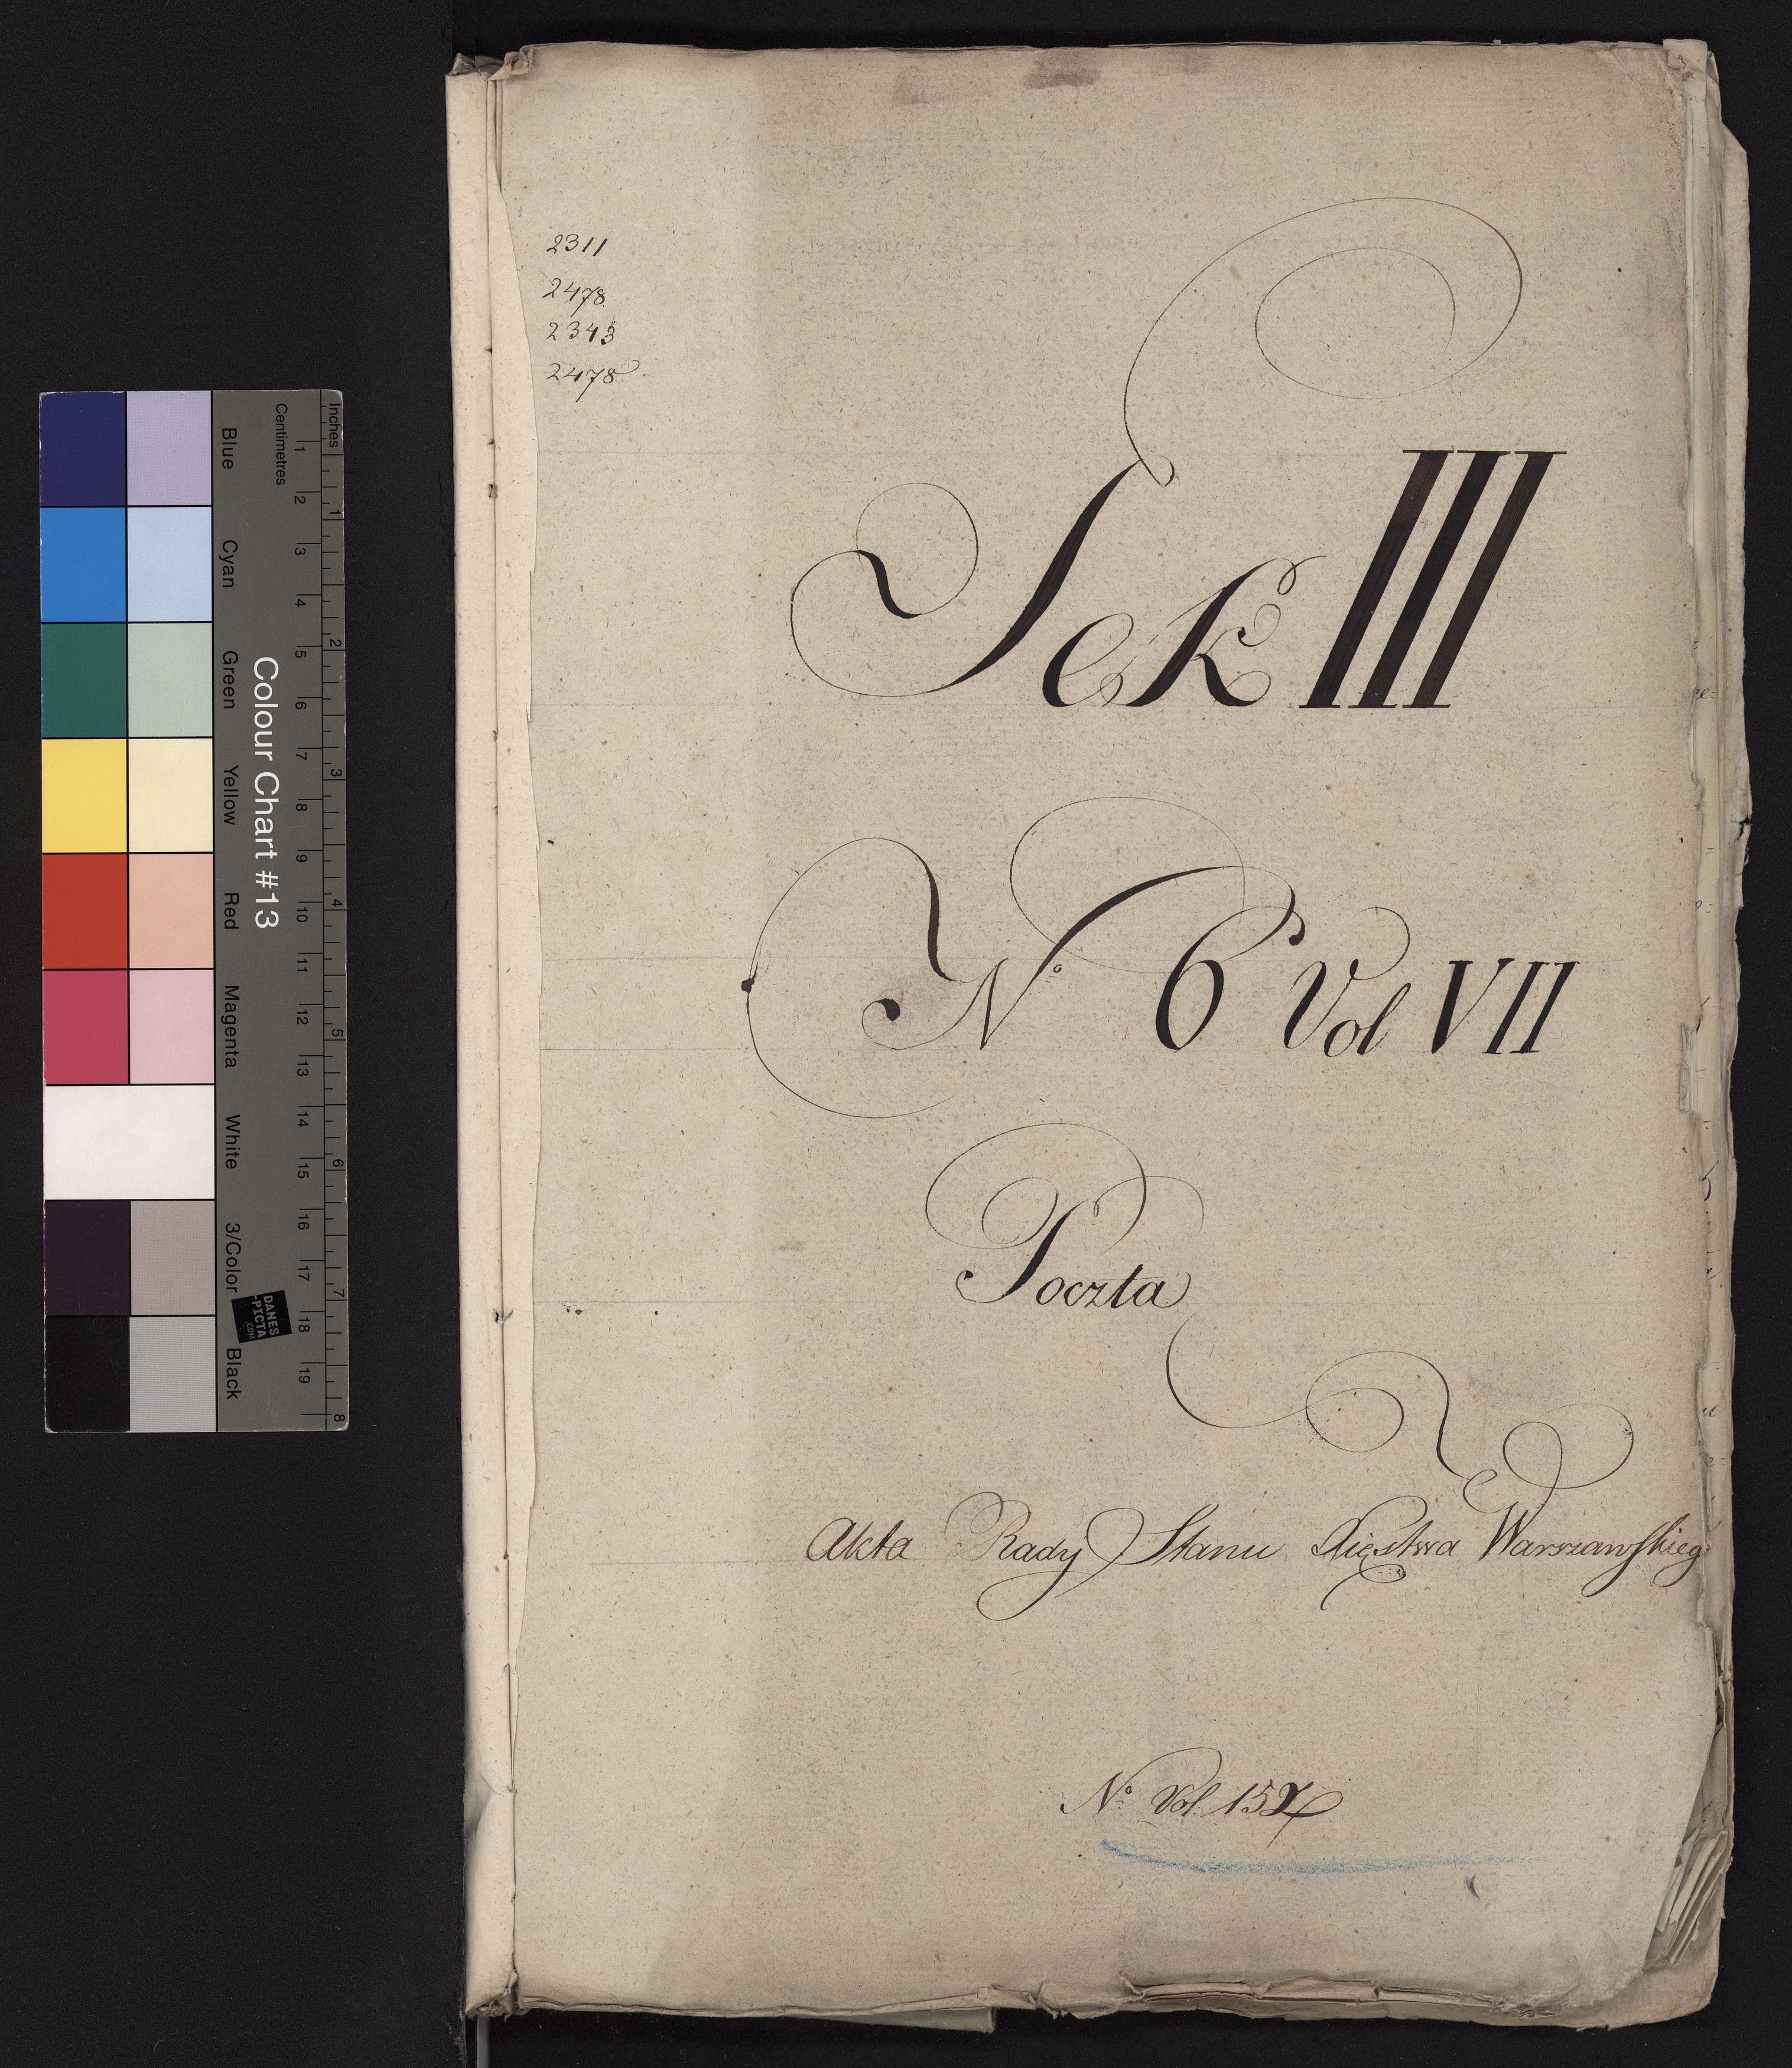 2311
2478
2343
2478
Sek III
No 6 Vol VII
Poczta
Akta Rady Stanu Xięstwa Warszawskieg
No Vol. 157
Inches
Centimetres
1 2 3 4 5 6 7 8 9 10 11 12 13 14 15 16 17 18 19
1 2 3 4 5 6 7 8
Colour Chart #13
Blue Cyan Green Yellow Red Magenta White 3/Color Black
DANES
-PICTA
.COM